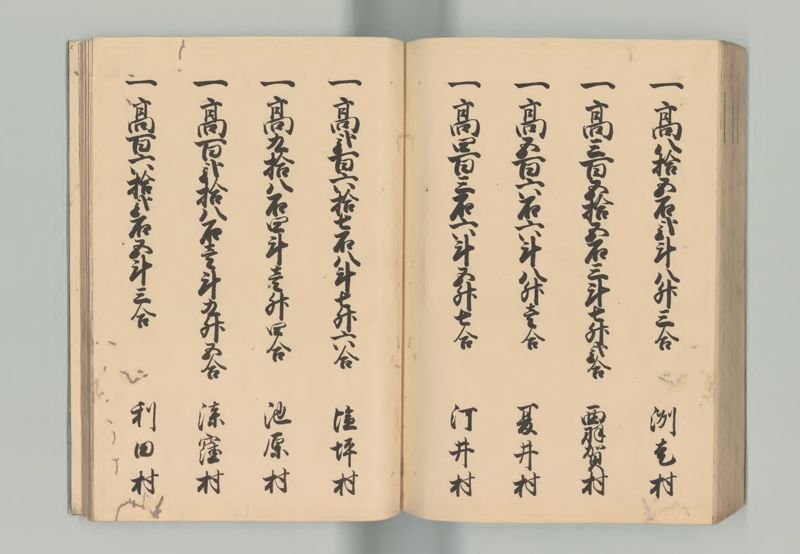 一高八拾五石弐斗八升三合 洌崎村
一高三百五拾五石三斗七升弐合 西羽賀村
一高五百六石六斗八升壱合 夏井村
一高四百三石六斗五升七合 汀井村
一高弐百六拾七石八斗七升六合 塩坪村
一高九拾八石四斗壱升四合 池原村
一高百弐拾八石壱斗九升五合 漆窪村
一高百六拾弐石五斗三合 利田村